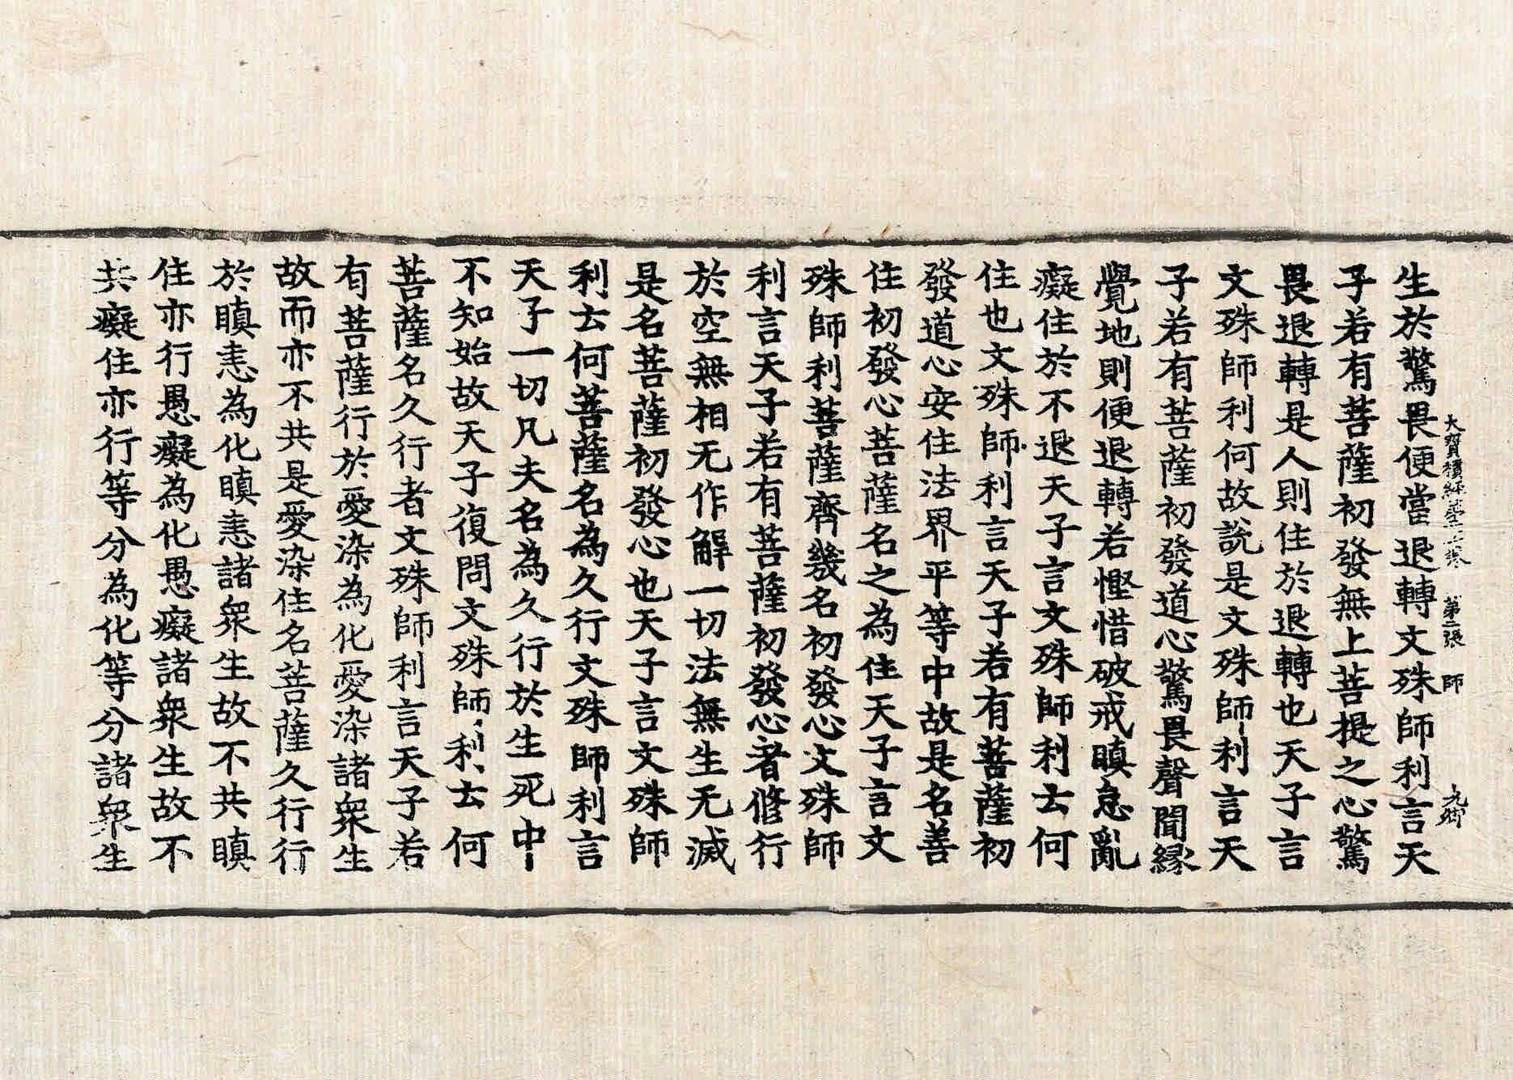 大寶積經第 第二張 師
生於驚畏便當退轉文殊師利言天
子若有菩薩初發無上菩提之心驚
畏退轉是人則住於退轉也天子言
文殊師利何故說是文殊師利言天
子若有菩薩初發道心驚畏聲聞緣
覺地則便退轉若慳惜破戒瞋怠亂
癡住於不退天子言文殊師利云何
住也文殊師利言天子若有菩薩初
發道心安住法界平等中故是名善
住初發心菩薩名之為住天子言文
殊師利菩薩齊幾名初發心文殊師
利言天子若有菩薩初發心者修行
於空無相无作解一切法無生无滅
是名菩薩初發心也天子言文殊師
利云何菩薩名為久行文殊師利言
天子一切凡夫名為久行於生死中
不知始故天子復問文殊師利云何
菩薩名久行者文殊師利言天子若
有菩薩行於愛染為化愛染諸衆生
故而亦不共是愛染住名菩薩久行行
於瞋恚為化瞋恚諸衆生故不共瞋
住亦行愚癡為化愚癡諸衆生故不
共癡住亦行等分為化等分諸衆生